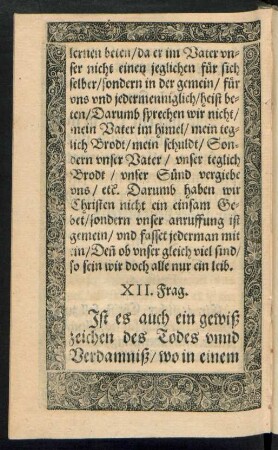 lernen beten/da er im Vater vn-
ser nicht einen jeglichen für sich
selber/sondern in der gemein/für
vns vnd jedermenniglich/heist be-
ten/Darumb sprechen wir nicht/
mein Vater im himel/mein teg-
lich Brodt/mein schuldt/Son-
dern vnser Vater/vnser teglich
Brodt/vnser Sünd vergiebe
vns/etc. Darumb haben wir
Christen nicht ein einsam Ge-
bet/sondern vnser anruffung ist
gemein/vnd fasset jederman mit
ein/Deñ ob vnser gleich viel sind/
so sein wir doch alle nur ein leib.
XII. Frag.
Ist es auch ein gewiß
zeichen des Todes vnnd
Verdamniß/wo in einem